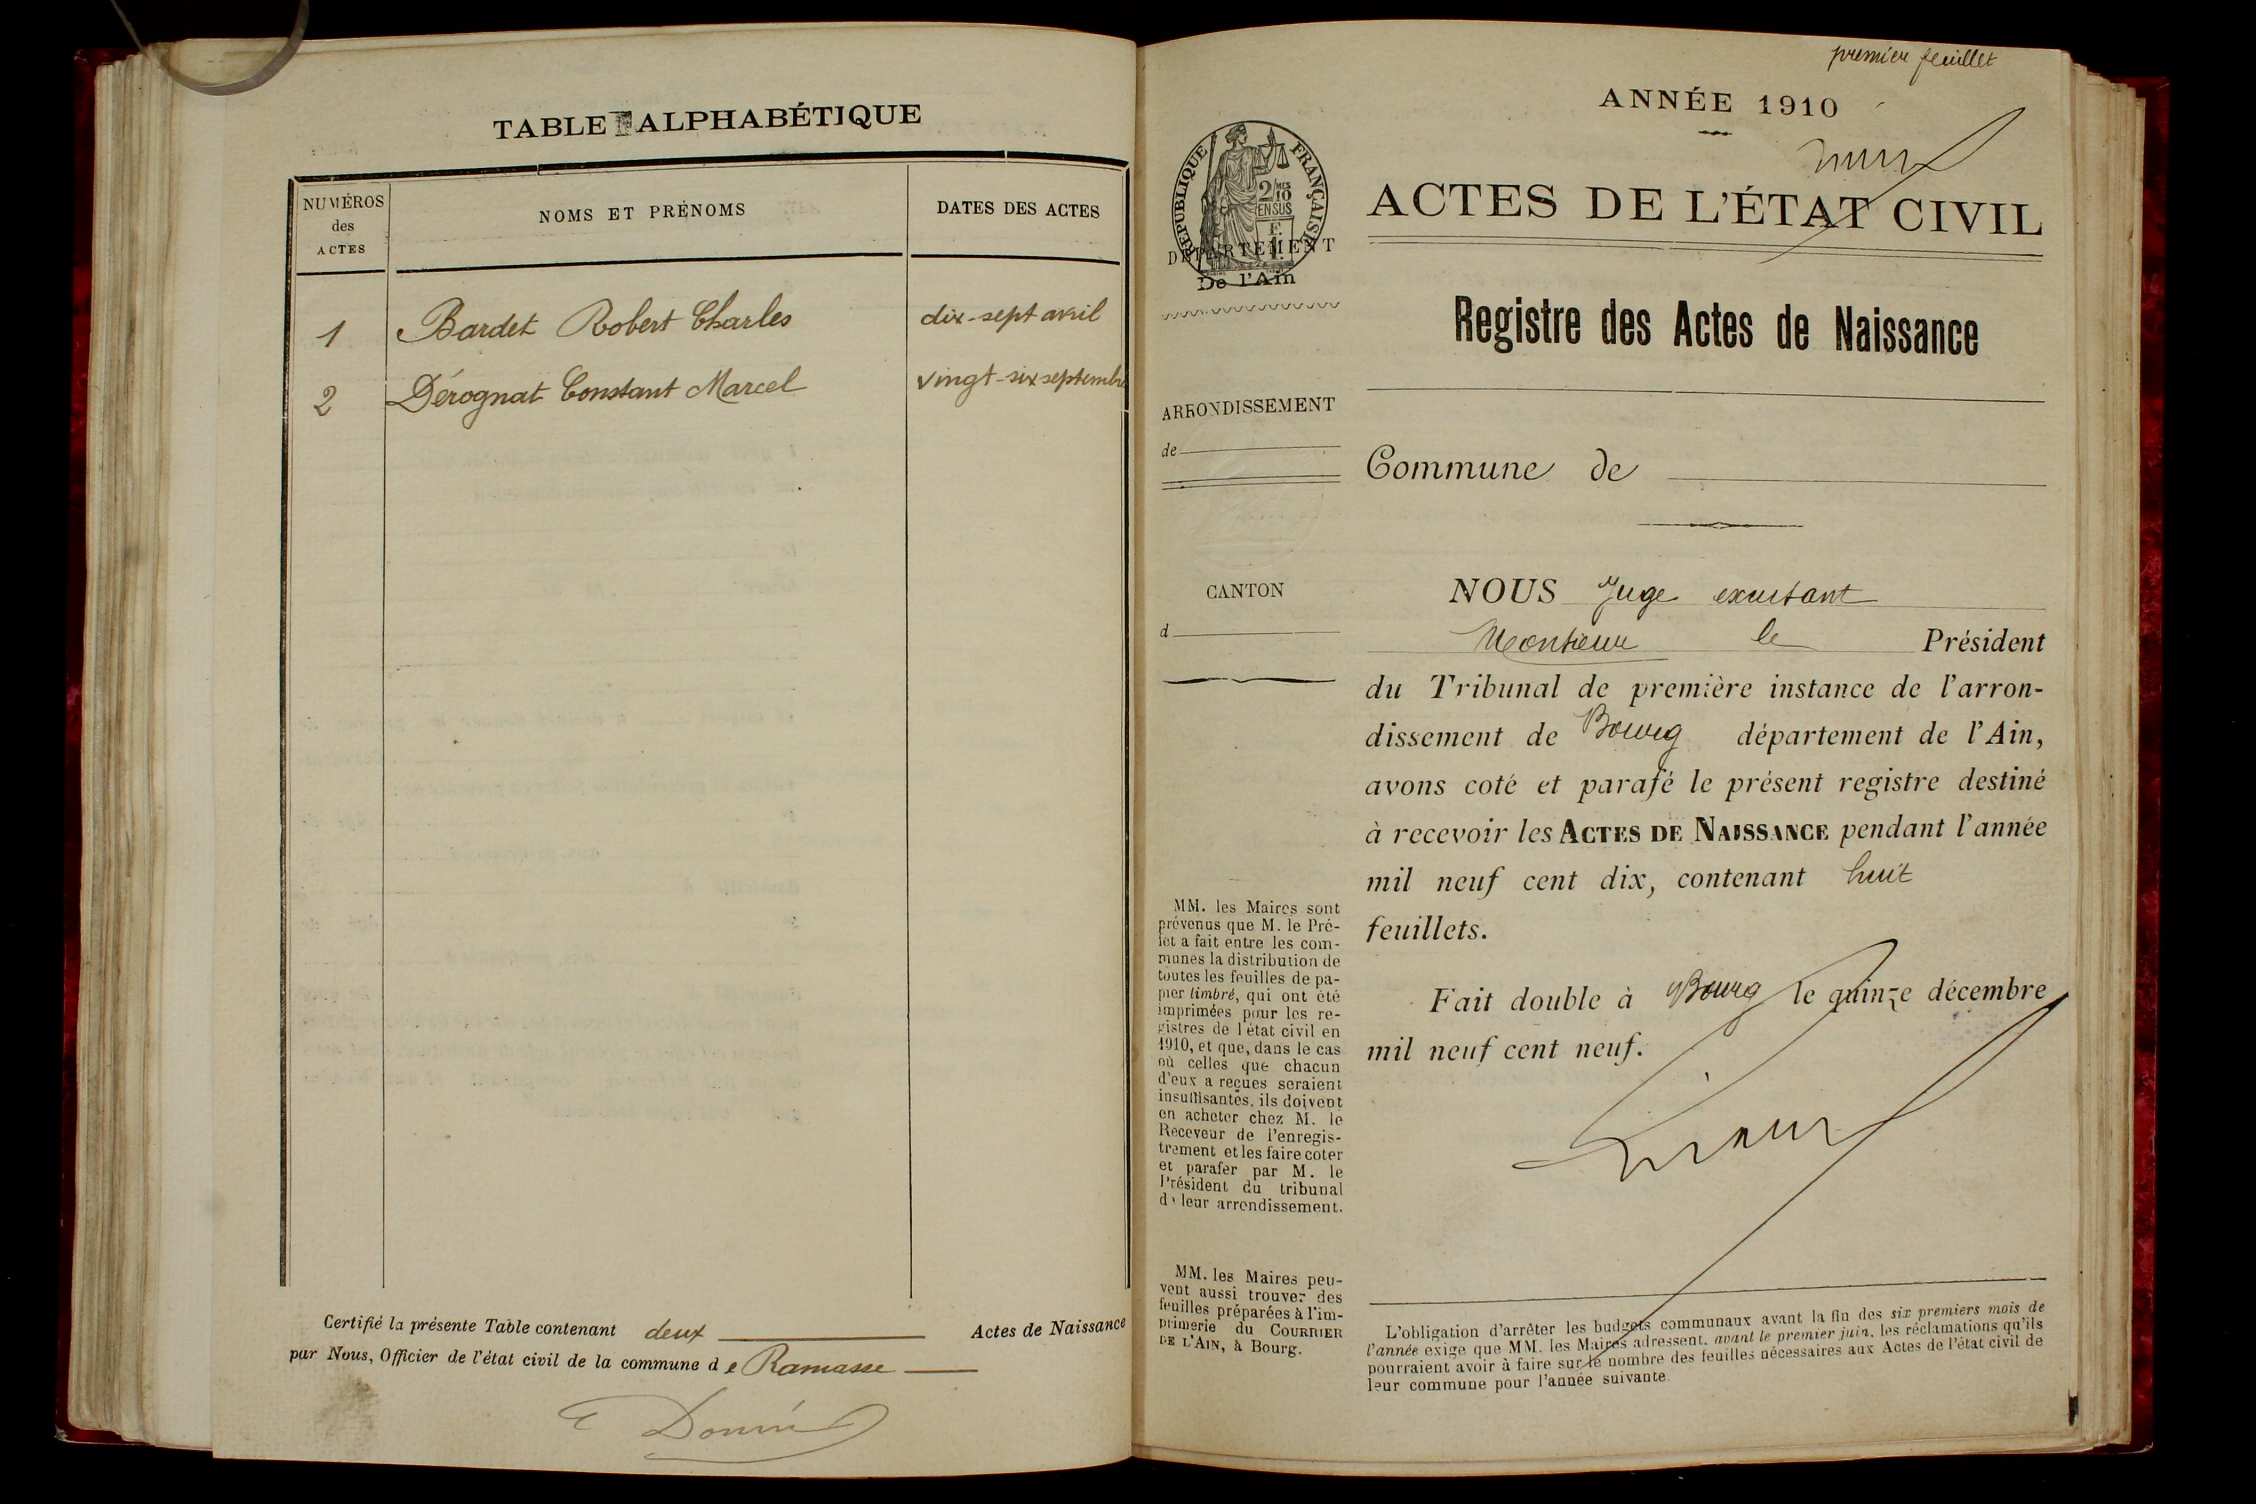 TABLE ALPHABÉTIQUE
NUMÉROS
des
ACTES
NOMS ET PRÉNOMS
DATES DES ACTES
1 Bardet Robert Charles dix-sept avril
2 Dérognat Constant Marcel vingt-six septembre
Certifié la présente Table contenant deux Actes de Naissance
par Nous, Officier de l'état civil de la commune de Ramasse
premier feuillet
ANNÉE 1910
RÉPUBLIQUE FRANÇAISE
2/10 MES
EN SUS
DÉPARTEMENT
De l'Ain
ACTES DE L'ÉTAT CIVIL
Registre des Actes de Naissance
ARRONDISSEMENT
de
Commune de
CANTON
d
NOUS Juge
Monsieur le Président
du Tribunal de première instance de l'arron-
dissement de Bourg département de l'Ain,
avons coté et parafé le présent registre destiné
à recevoir les ACTES DE NAISSANCE pendant l'année
mil neuf cent dix, contenant huit
feuillets.
Fait double à Bourg le quinze décembre
mil neuf cent neuf.
MM. les Maires sont
prévenus que M. le Pré-
fet a fait entre les com-
munes la distribution de
toutes les feuilles de pa-
pier timbré, qui ont été
imprimées pour les re-
gistres de l'état civil en
1910, et que, dans le cas
où celles que chacun
d'eux a reçues seraient
insuffisantes, ils doivent
en acheter chez M. le
Receveur de l'enregis-
trement et les faire coter
et parafer par M. le
Président du tribunal
de leur arrondissement.
MM. les Maires peu-
vent aussi trouver des
feuilles préparées à l'im-
primerie du COURRIER
DE L'AIN, à Bourg.
L'obligation d'arrêter les budgets communaux avant la fin des six premiers mois de
l'année exige que MM. les Maires adressent, avant le premier juin, les réclamations qu'ils
pourraient avoir à faire sur le nombre des feuilles nécessaires aux Actes de l'état civil de
leur commune pour l'année suivante.